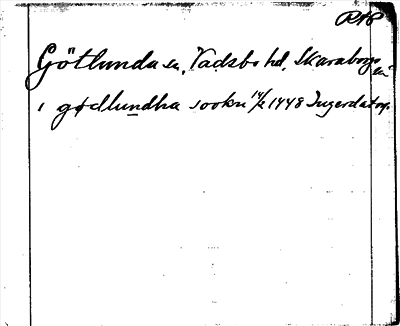 RAP
Götlunda sn, Vadsbo hd, Skaraborgs
i gødlundha sookn 14/2 1448 Ingerdatorp